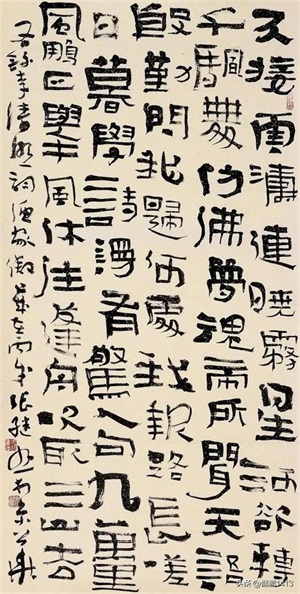 天接雲濤連曉霧星河欲轉
千颿舞仿佛夢魂帝所聞天語
殷勤問我歸何處我報路長嗟
日暮學詩謾有驚人句九萬里
風鵬正舉風休住蓬舟吹取三山去
錄李清照詞漁家傲歲在丙戌張繼於京華